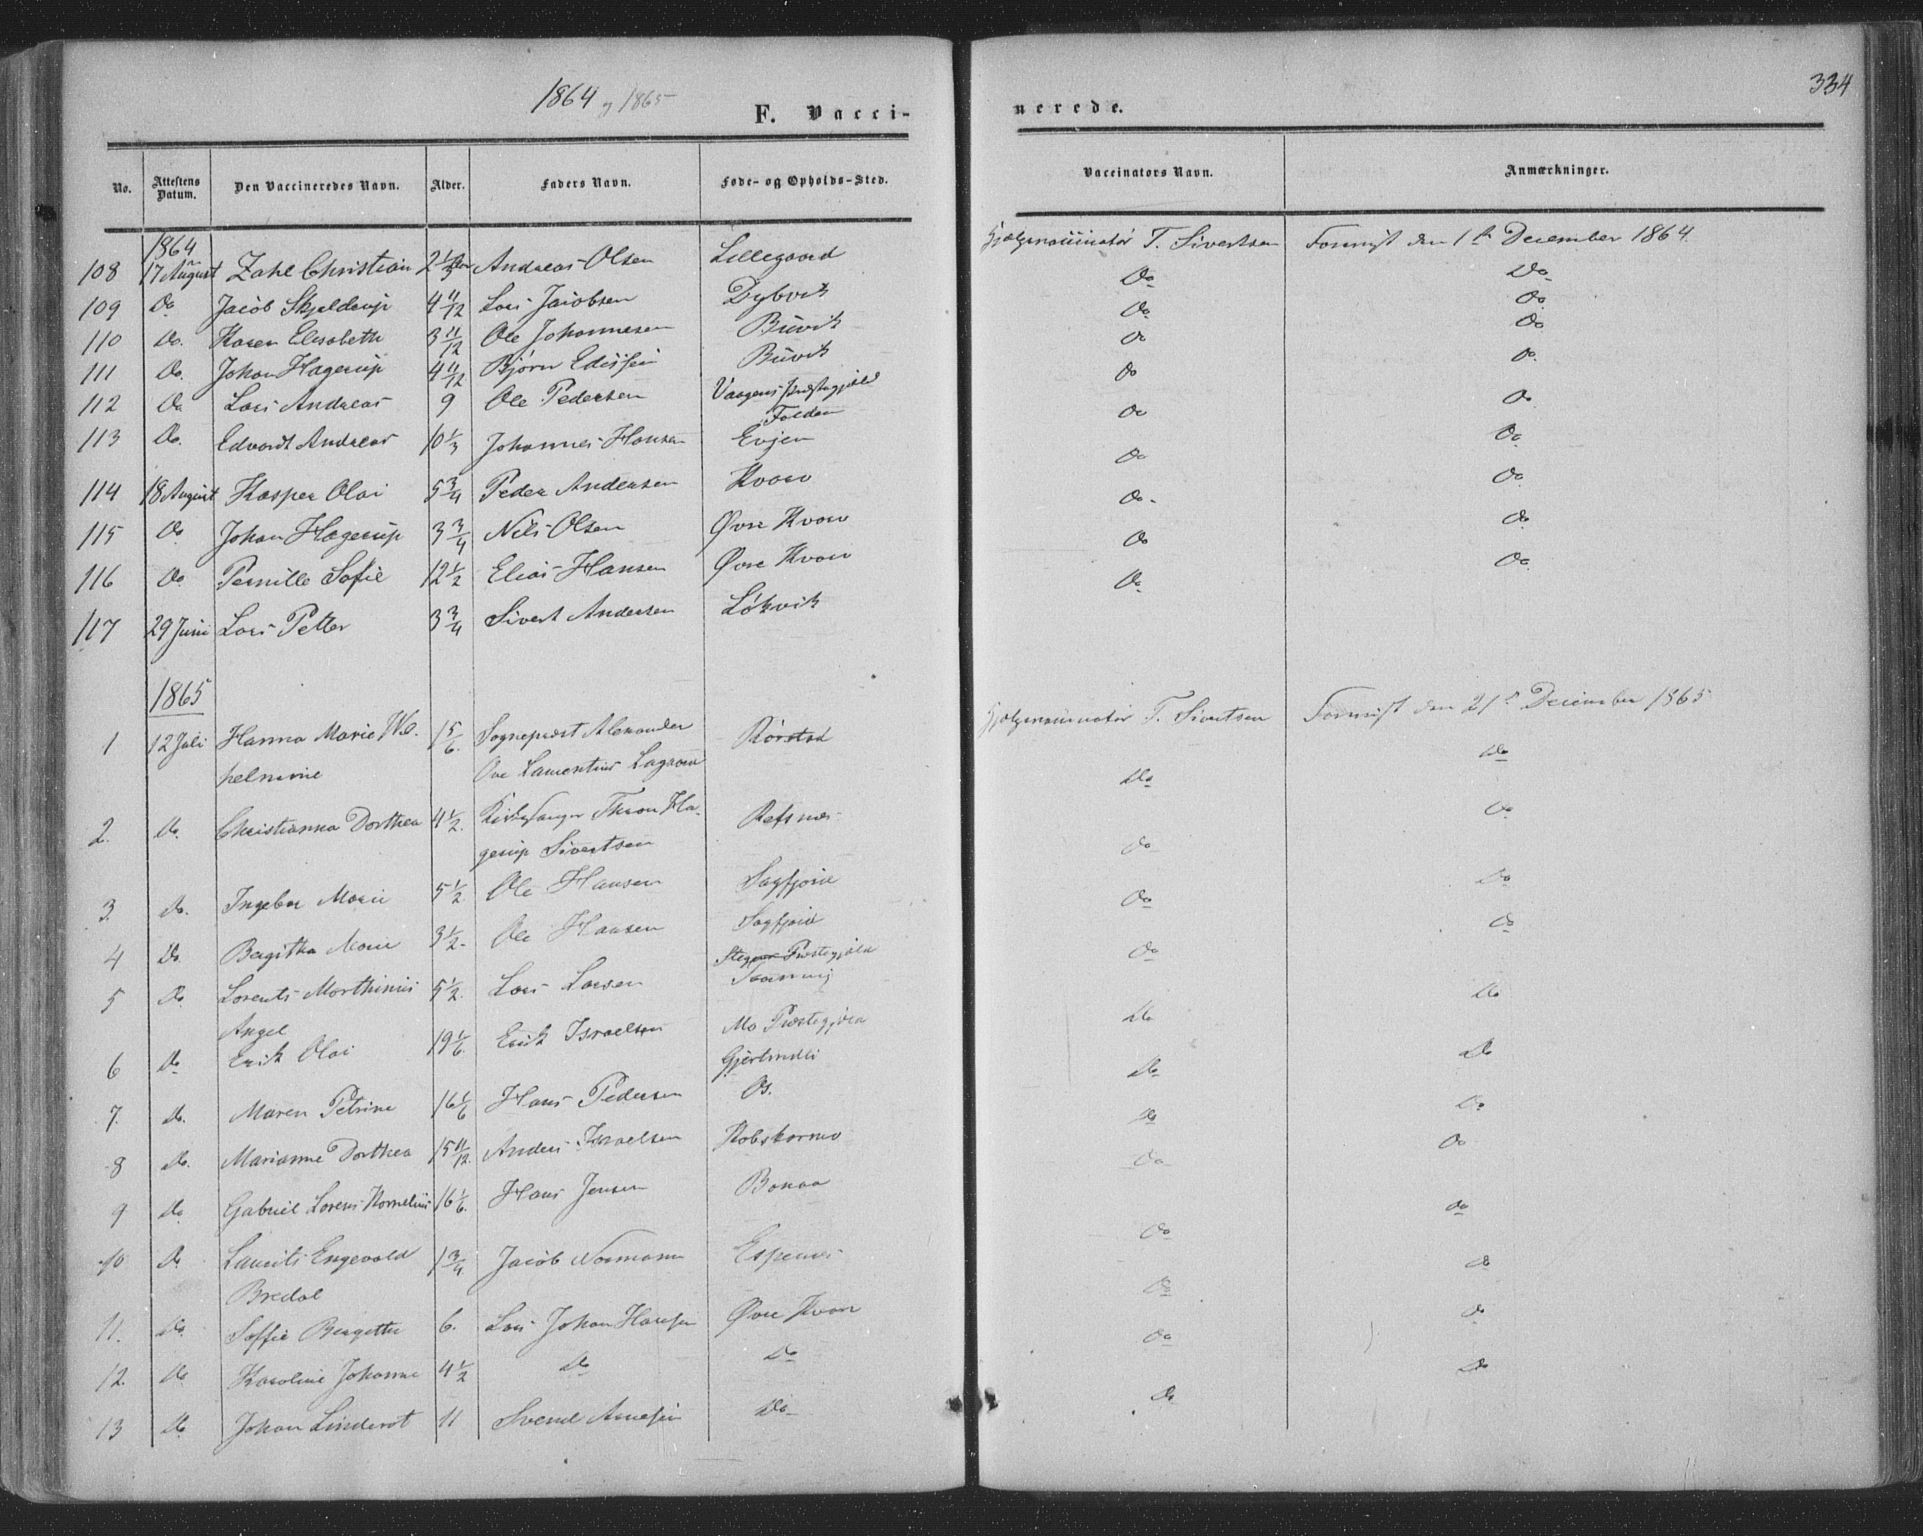 1864 og 1865
334
F. Vacci-
nerede.
No. Attestens Datum. Den Vaccineredes Navn. Alder. Faders Navn. Føde- og Opholds-Sted. Vaccinators Navn. Anmærkninger.
1864
108 17 August Zahl Christian 2 1/3 Andreas Olsen Lillegaard Hjælpevaccinatør T. Sivertsen Fornyet den 1ste December 1864.
109 Do Jacob Skjelderup 4 11/12 Lars Jacobsen Dybvik Do Do
110 Do. Karen Elisabeth 3 11/12 Ole Johannesen Buvik Do. Do.
111 Do. Johan Hagerup 4 11/12 Bjørn Buvik Do Do
112 Do Lars Andreas 9 Ole Pedersen Vaagens Præstegjæld Do Do.
Folden
113 Do. Edvardt Andreas 10 1/3 Johannes Hansen Evjen Do Do
114 18 August Kasper Olai 5 3/4 Peder Andersen Kvarv Do Do
115 Do Johan Hagerup 3 3/4 Nils Olsen Øvre Kvarv Do. Do
116 Do. Pernille Sofie 12 1/2 Elias Hansen Øvre Kvarv Do Do
117 29 Juni Lars Petter 3 3/4 Sivert Andersen Løkvik Do. Do.
1865
1 12 Juli Hanna Marie Wil- 15/6. Sogneprest Alexander Rørstad Hjælpevaccinatør T. Sivertsen Fornyet den 21de December 1865
helmine Ove Laurentius Do
2. Do. Christianna Dorthea 4 1/2. Kirkesanger Thron Ha- Refsnes Do Do
gerup Sivertsen
3. Do. Ingebor Marie 5 1/2 Ole Hansen Sagfjord Do Do
4 Do. Bergitha Marie 3 1/2. Ole Hansen Sagfjord Do Do
5 Do Lorents Morthinus 5 1/2. Lars Larsen Stegens Præstegjæld Do Do
Angel
6 Do Erik Olai 19 1/6. Erik Israelsen Mo Præstegjæld Do Do
7. Do. Maren Petrine 16 1/6 Hans Pedersen Os. Do Do
8 Do. Marianne Dorthea 15 11/12. Anders Israelsen Kobskarmo Do Do
9 Do Gabriel Lorens Kornelius 16 1/6. Hans Jensen Bonaa Do Do
10 Do Laurits Engevald 1 3/4 Jacob Normann Espenes Do Do
Bredal
11. Do Soffie Bergitte 6. Lars Johan Hansen Øvre Kvarv Do Do
12. Do Karoline Johanna 4 1/2 Do Do Do Do
13 Do Johan Linderot 11 Svend Arnesen Do Do